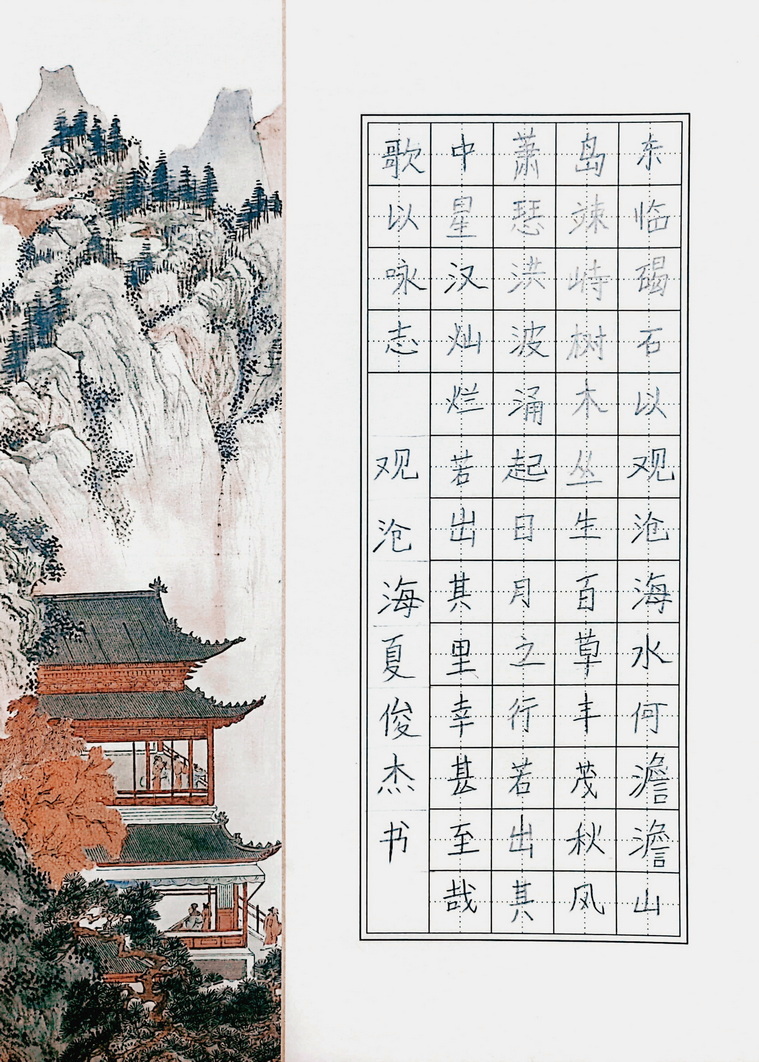 东临碣石以观沧海水何澹澹山
岛竦峙树木丛生百草丰茂秋风
萧瑟洪波涌起日月之行若出其
中星汉灿烂若出其里幸甚至哉
歌以咏志
观沧海夏俊杰书